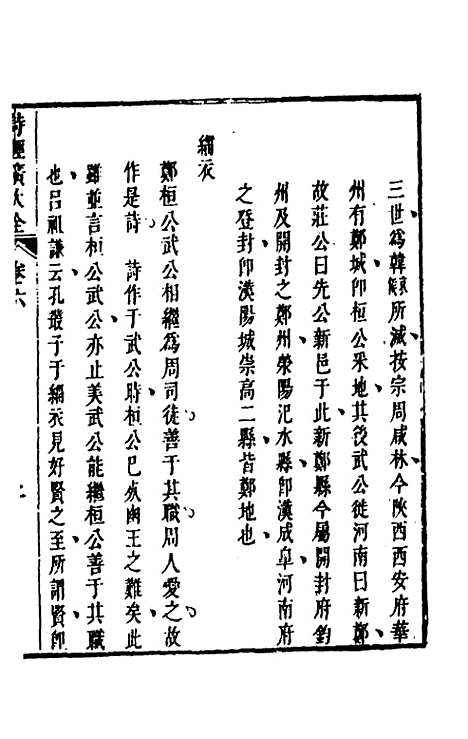 三世爲韓所滅按宗周咸林今陝西西安府華
州有鄭城卽桓公采地其後武公徙河南曰新鄭
故莊公曰先公新邑于此新鄭縣今屬開封府鈞
州及開封之鄭州滎陽汜水縣卽漢成皐河南府
之登封卽漢陽城崇高二縣皆鄭地也
緇衣
鄭桓公武公相繼爲周司徒善于其職周人愛之故
作是詩 詩作于武公時桓公已死幽王之難矣此
雖並言桓公武公亦止美武公能繼桓公善于其職
也呂祖謙云孔叢子于緇衣見好賢之至所謂賢卽
詩經廣大全 卷六